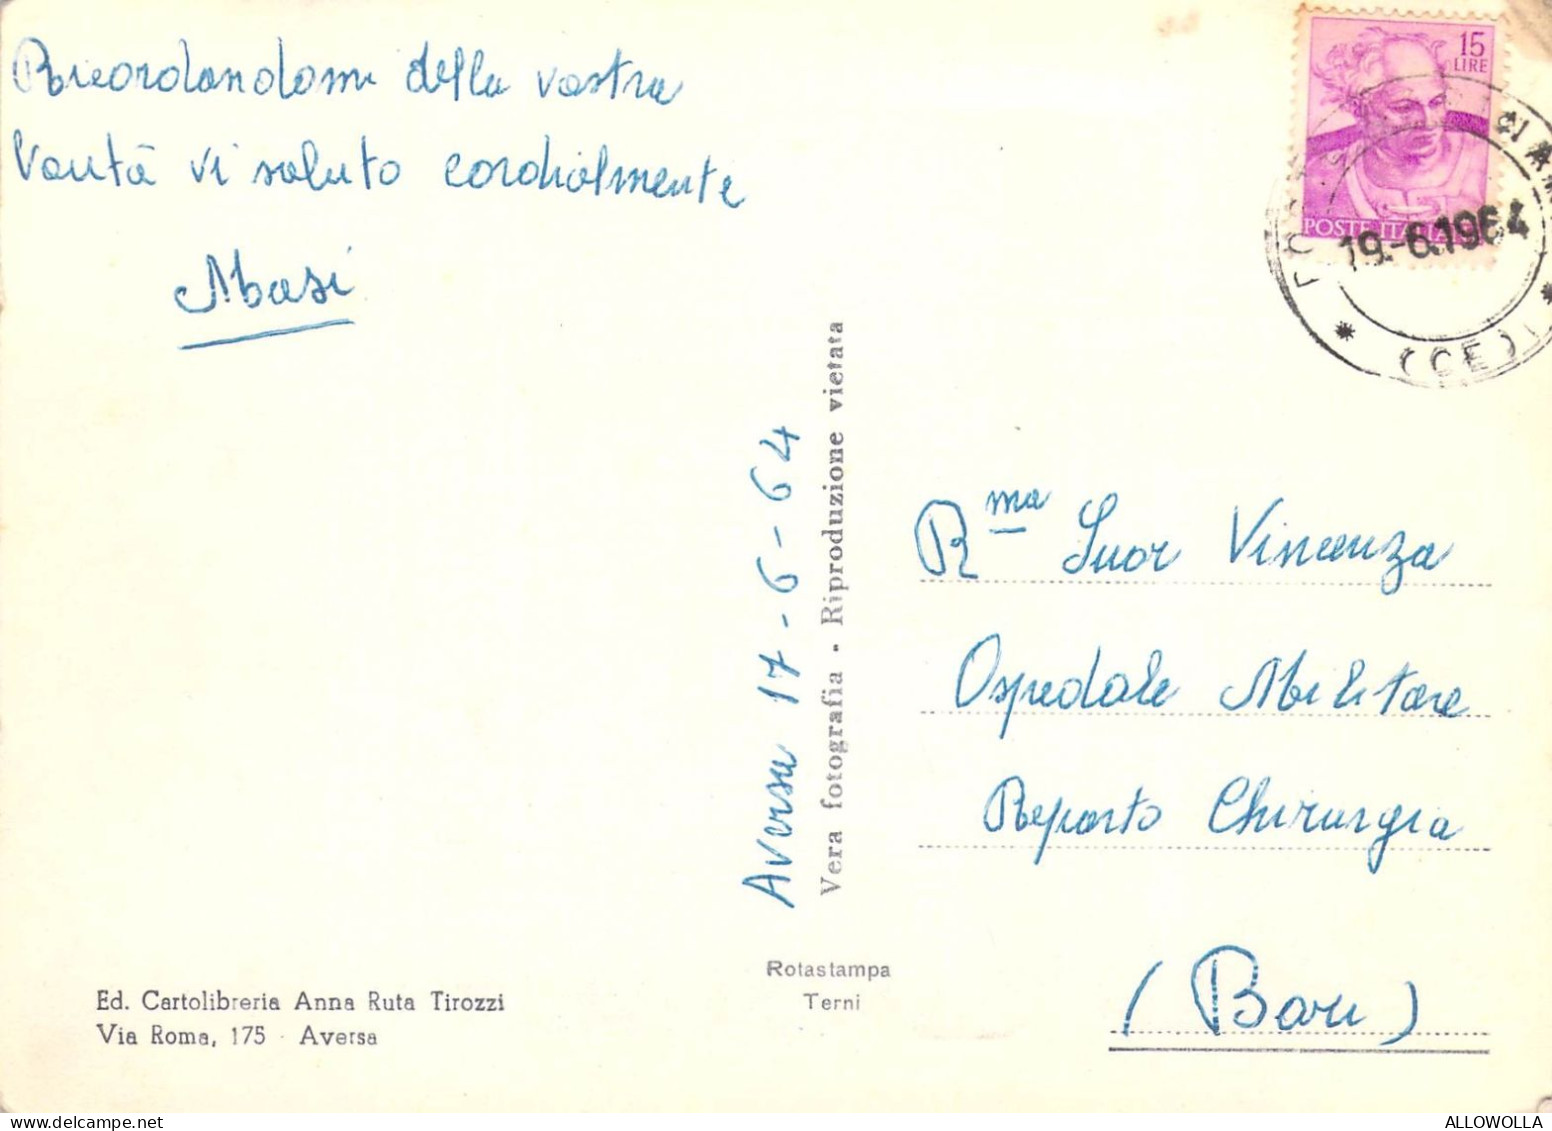 Ricordandomi della vostra
bontà vi saluto cordialmente
Masi
Aversa 17-6-64
Vera fotografia - Riproduzione vietata
15
LIRE
POSTE ITALIANE
19.-6.1964
(CE)
Rma Suor Vincenza
Ospedale Militare
Reparto Chirurgia
(Bari)
Rotastampa
Terni
Ed. Cartolibreria Anna Ruta Tirozzi
Via Roma, 175 - Aversa
ALLOWOLLA